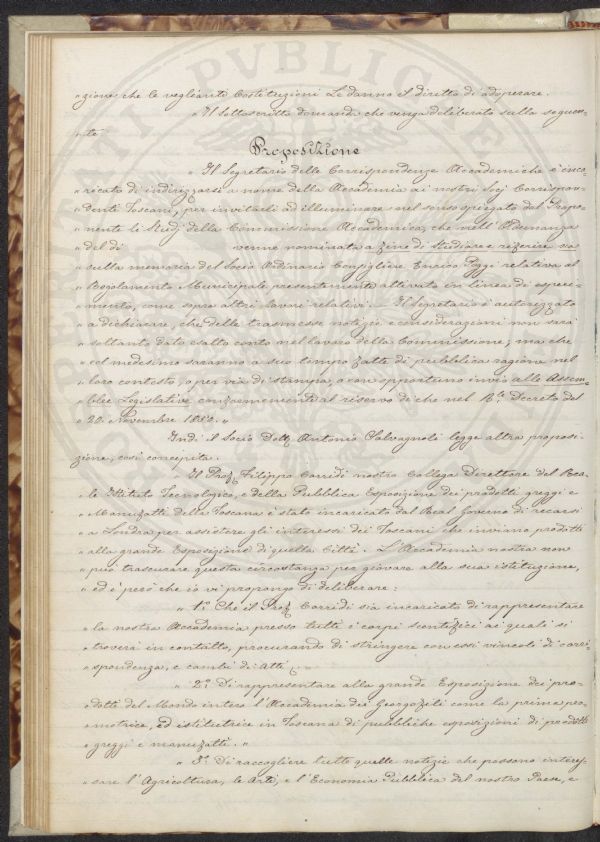 "zione che le veglianti Costituzioni Le danno il diritto di adoperare.
"Il sottoscritto domanda che venga deliberato sulla seguen-
"te
Proposizione
"Il Segretario delle Corrispondenze Accademiche è inca-
"ricato di indirizzarsi a nome della Accademia ai nostri Socj Corrispon-
"denti Toscani, per invitarli ad illuminare nel senso spiegato dal Propo-
"nente li Studj della Commissione Accademica, che nell'Adunanza
"del dì venne nominata a fine di studiare e referire su
"sulla memoria del Socio Ordinario Consigliere Enrico Poggi relativa al
"Regolamento Municipale presentemente attivato in linea di esperi-
"mento, come sopra altri lavori relativi. — Il Segretario è autorizzato
"a dichiarare, che delle trasmesse notizie e considerazioni non sarà
"soltanto dato esatto conto nel lavoro della Commissione; ma che
"ed medesimo saranno a suo tempo fatte di pubblica ragione nel
"loro contesto, o per via di stampa, o con opportuno invio alle Assem-
"blee Legislative conformemente al riservo di che nel R.le Decreto del
"20. Novembre 1850."
Indi il Socio Dott. Antonio Salvagnoli legge altra proposi-
zione, così concepita.
"Il Prof. Filippo Corridi nostro Collega Direttore del Rea-
"le Istituto Tecnologico, e della Pubblica Esposizione dei prodotti greggi e
"Manufatti della Toscana è stato incaricato dal Real Governo di recarsi
"a Londra per assistere gli interessi dei Toscani che inviano prodotti
"alla grande Esposizione di quella Città. L'Accademia nostra non
"può trascurare questa circostanza per giovare alla sua istituzione,
"ed è però che io vi propongo di deliberare:
"1.° Che il Prof. Corridi sia incaricato di rappresentare
"la nostra Accademia presso tutti i corpi scentifici ai quali si
"troverà in contatto, procurando di stringere con essi vincoli di corri-
"spondenza, e cambi di Atti.
"2.° Di rappresentare alla grande Esposizione dei pro-
"dotti del Mondo intero l'Accademia dei Georgofili come la prima pro-
"motrice, ed istitutrice in Toscana di pubbliche esposizioni di prodotti
"greggi e manufatti."
"3.° Di raccogliere tutte quelle notizie che possono interes-
"sare l'Agricoltura, le Arti, e l'Economia Pubblica del nostro Paese, e